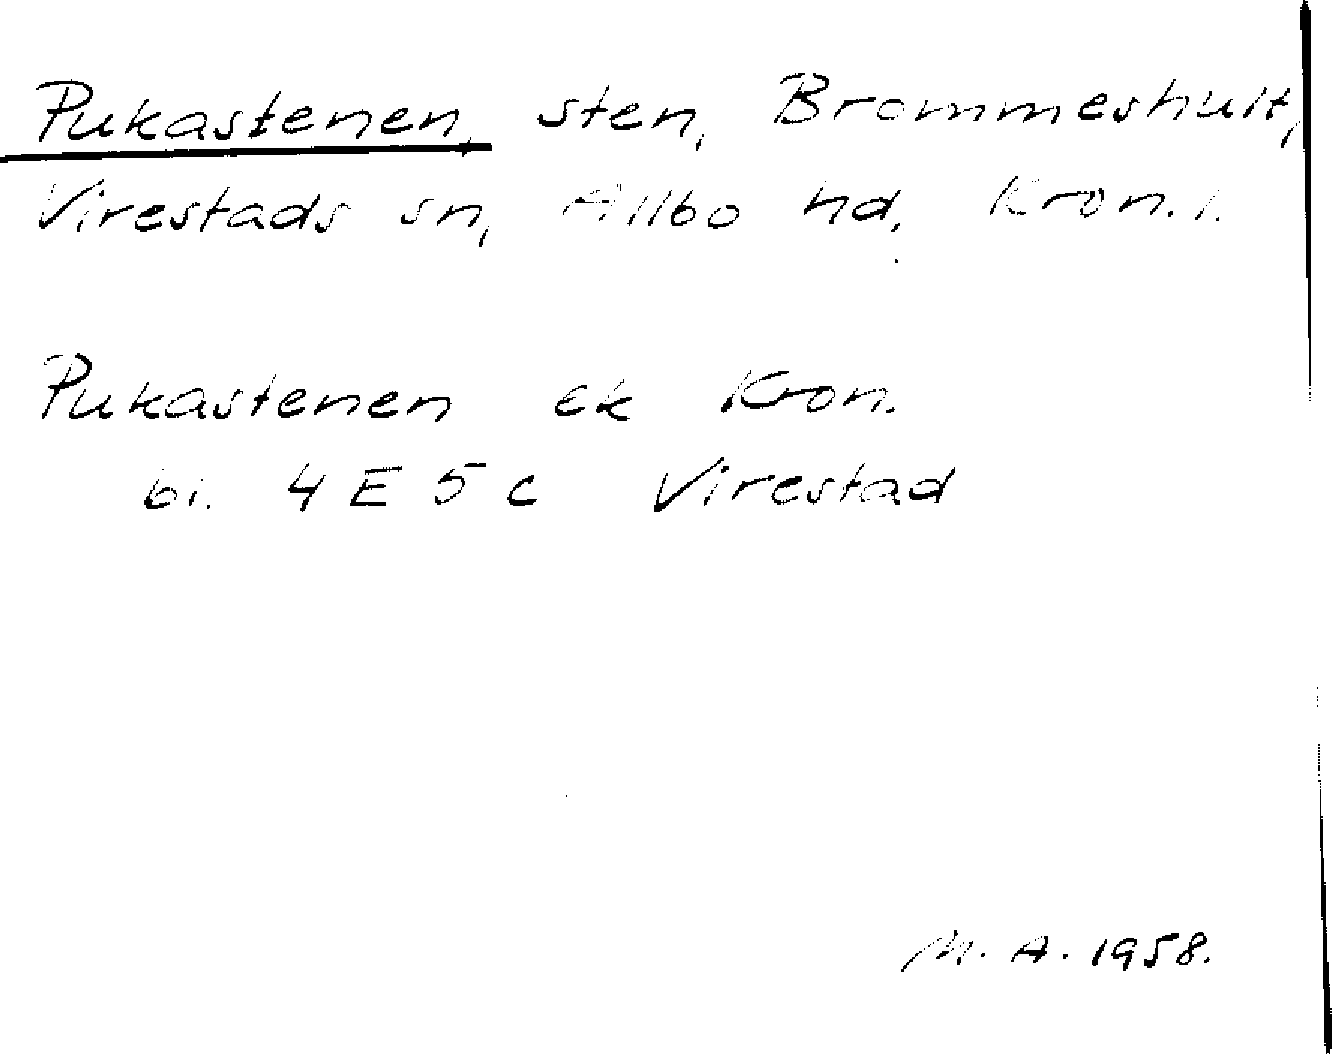 Pukastenen, sten, Brommeshult,
Virestads sn, Allbo hd, Kron. l.
Pukastenen ek Kron.
bl. 4 E 5 c Virestad
M. A. 1958.